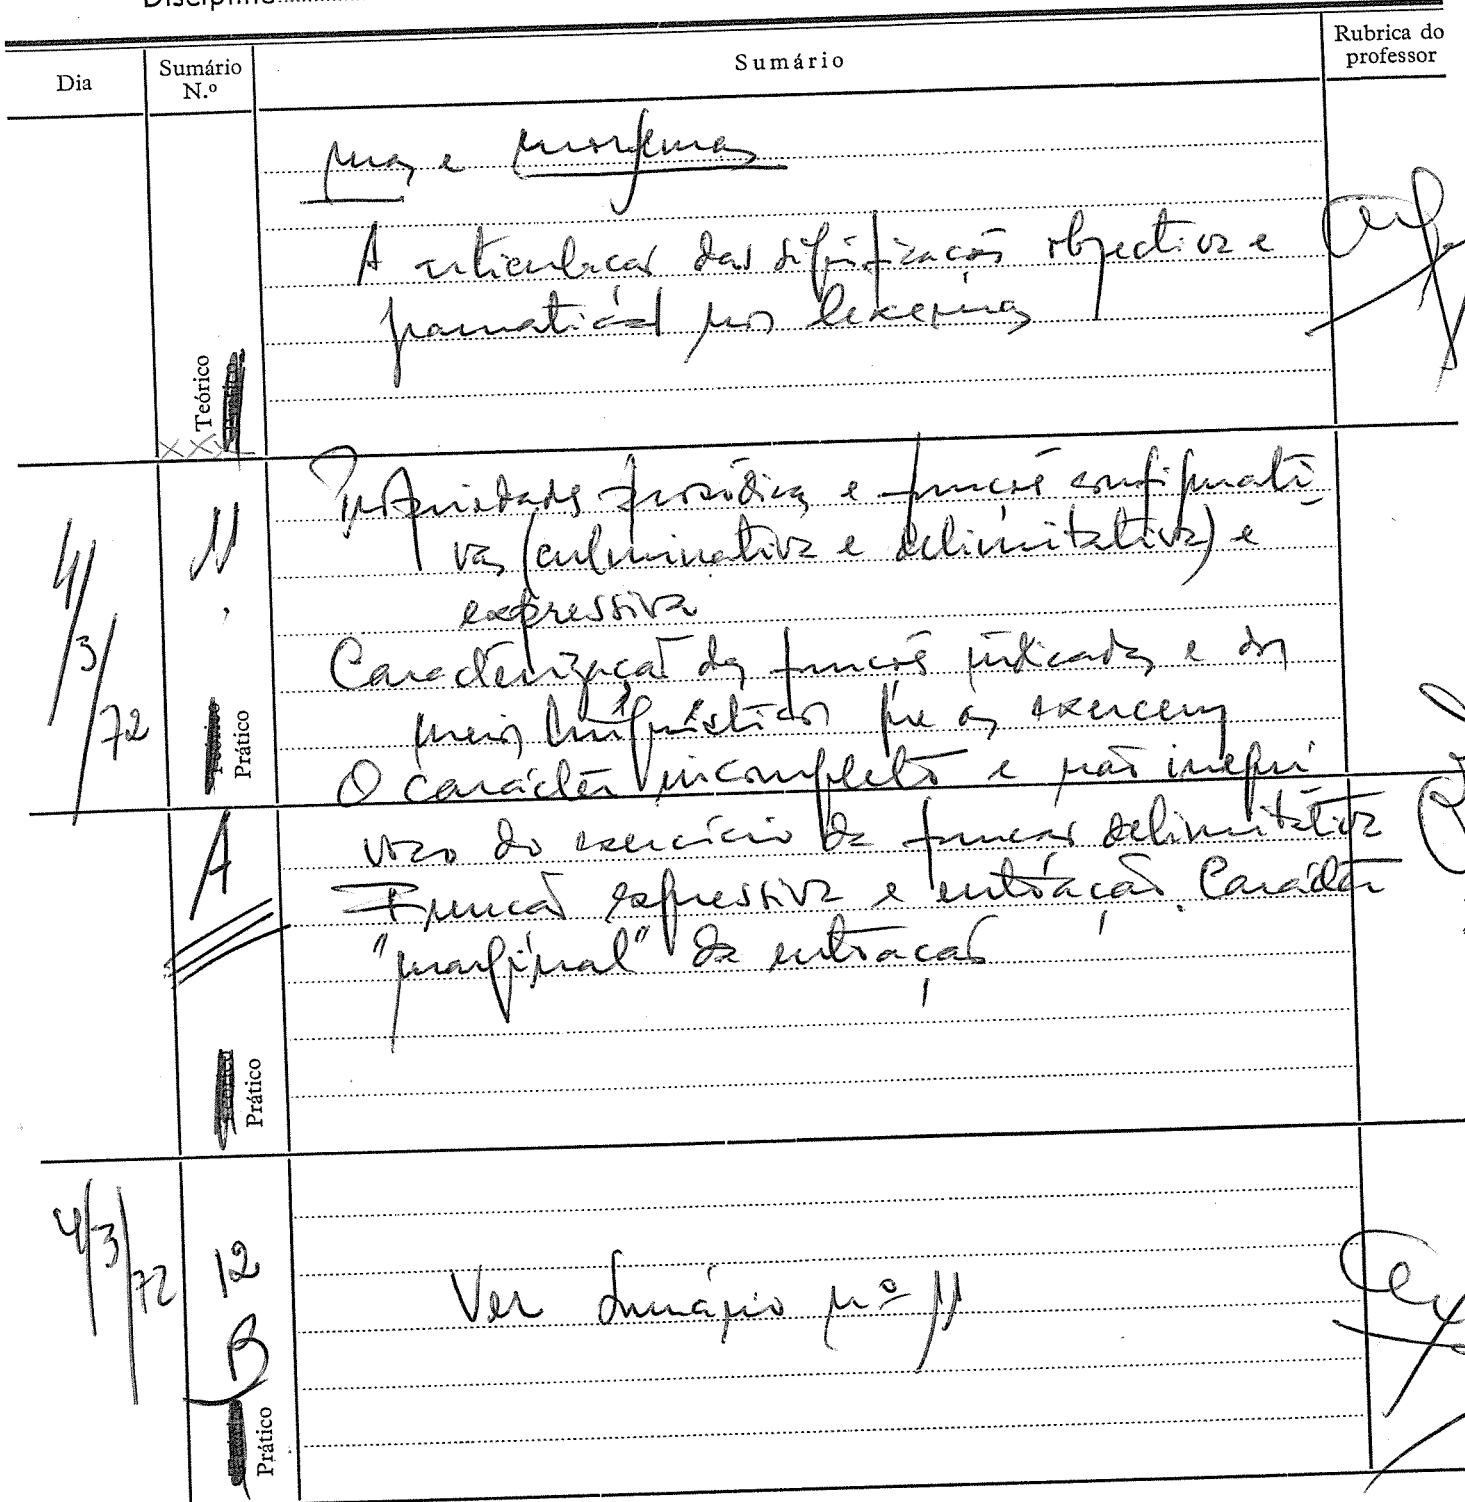 Disciplina
Dia
Sumário N.º
Sumário
Rubrica do professor
mas e morfemas
A articulação das significações objectiva e
gramatical nos lexemas
Teórico
Propriedades prosódicas e funções configurati-
vas (culminativa e delimitativa) e
expressiva
Caracterização das funções indicadas e dos
meios linguísticos que as exercem
O carácter incompleto e não inequí
4/3/72
11
Prático
voco do exercício da função delimitativa
Função expressiva e entoação. Carácter
"marginal" da entoação
A
Prático
4/3/72
12
B
Ver Sumário nº 11
Prático